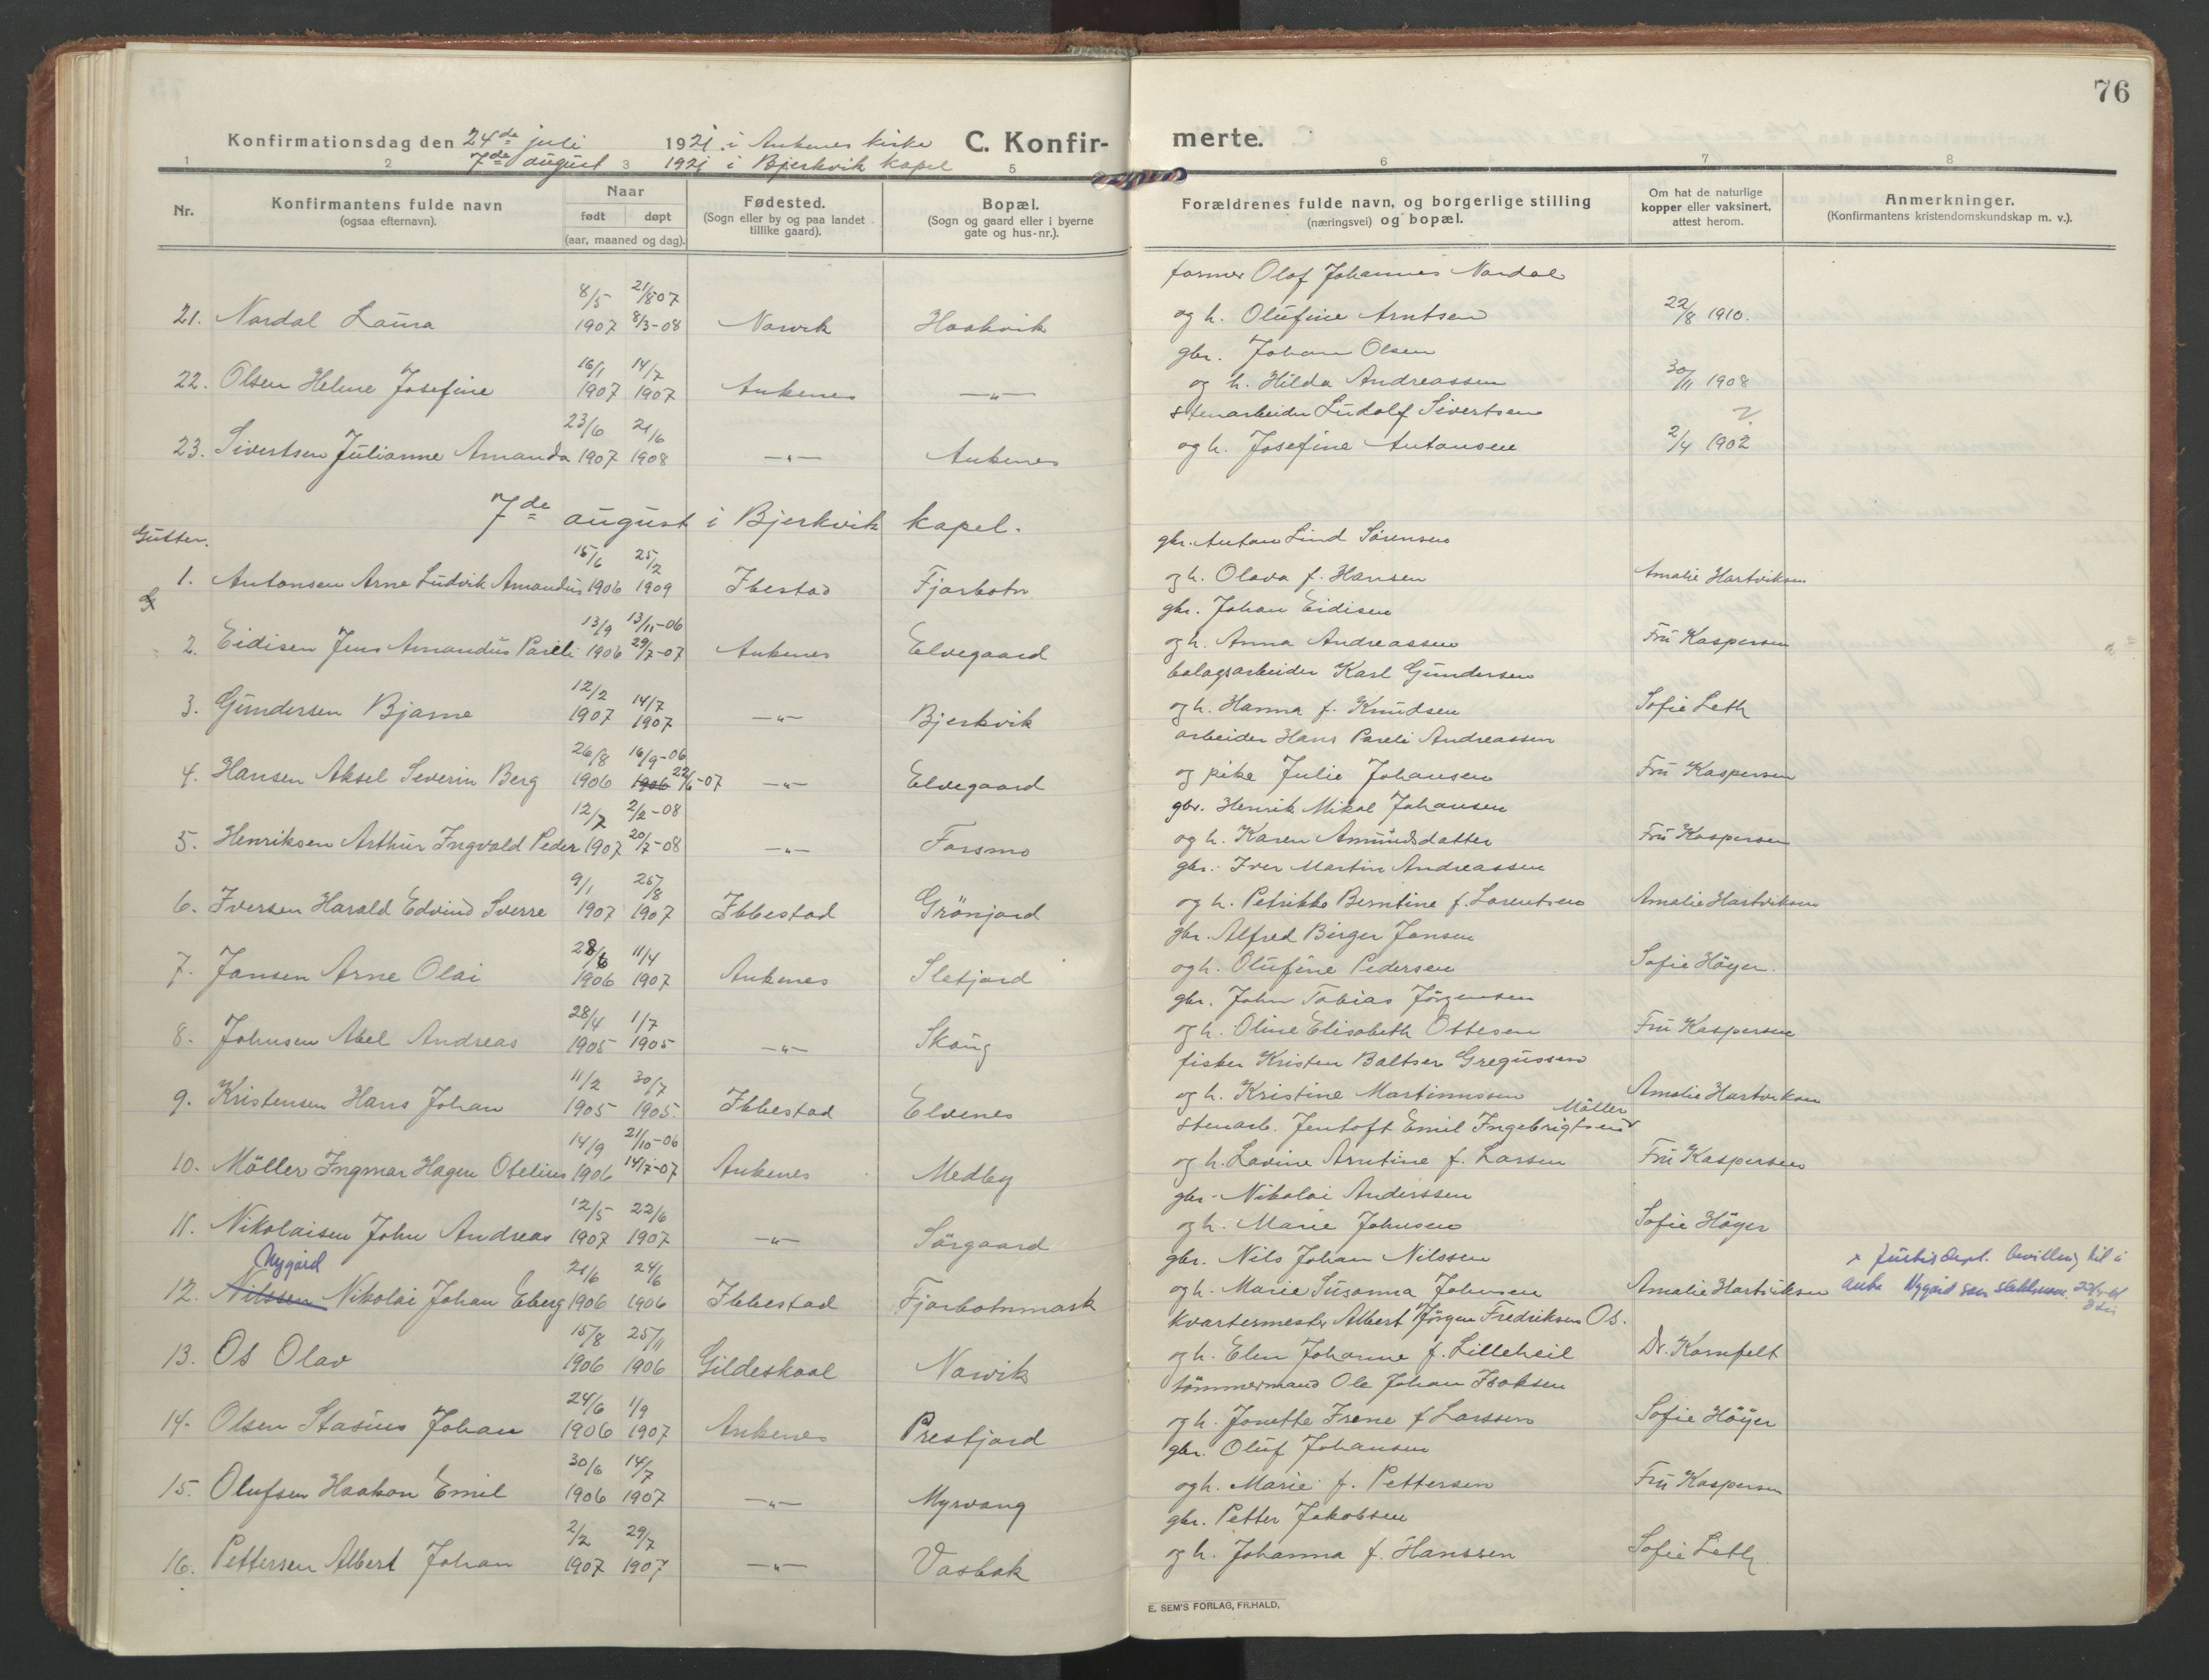 76
Konfirmationsdag den 24de juli 1921 i Ankenes kirke C. Konfir- merte.
7de august 1921 i Bjerkvik kapel
1 2 3 5 6 7 8
Nr. Konfirmantens fulde navn (ogsaa efternavn). Naar født døpt (aar, maaned og dag). Fødested. (Sogn eller by og paa landet tillike gaard). Bopæl. (Sogn og gaard eller i byerne gate og hus-nr.). Forældrenes fulde navn, og borgerlige stilling (næringsvei) og bopæl. Om hat de naturlige kopper eller vaksinert, attest herom. Anmerkninger. (Konfirmantens kristendomskundskap m. v.).
21. Nordal Laura 8/5 1907 21/8 07 8/3-08 Narvik Haakvik former Olaf Johannes Nordal og h. Olufine Arntsen 22/8 1910.
22. Olsen Helene Josefine 16/1 1907 14/7 1907 Ankenes —"— gbr. Johan Olsen og h. Hilda Andreassen 30/11 1908
23. Sivertsen Julianne Amanda 23/6 1907 21/6 1908 —"— Ankenes stenarbeider Ludolf Sivertsen og h. Josefine Antonsen 2/4 1902 ?
7de august i Bjerkvik kapel.
Gutter.
1. Antonsen Arne Ludvik Amandus 15/6 1906 25/2 1909 Ibestad Fjorbotn gbr. Anton Lind Sörensen og h. Olava f. Hansen Amalie Hartviksen
2. Eidisen Jens Amandus Parelli 13/9 1906 13/11-06 29/7-07 Ankenes Elvegaard gbr. Johan Eidisen og h. Anna Andreassen Fru Kaspersen
3. Gundersen Bjarne 12/2 1907 14/7 1907 —"— Bjerkvik bolagsarbeider Karl Gundersen og h. Hanna f. Knudsen Sofie Leth
4. Hansen Aksel Severin Berg 26/8 1906 16/9-06 1906 22/6-07 —"— Elvegaard arbeider Hans Pareli Andreassen og pike Julie Johansen Fru Kaspersen
5. Henriksen Arthur Ingvald Peder 12/7 1907 2/2-08 20/7-08 —"— Forsmo gbr. Henrik Mikal Johansen og h. Karen Amundsdatter Fru Kaspersen
6. Iversen Harald Edvind Sverre 9/1 1907 25/8 1907 Ibbestad Grönjord gbr. Iver Martin Andreassen og h. Petrikke Berntine f. Lorentsen Amalie Hartviksen
7. Jansen Arne Olai 28/6 1906 11/4 1907 Ankenes Sletjord gbr. Alfred Birger Jansen og h. Olufine Pedersen Sofie Höyer.
8. Johnsen Abel Andreas 28/4 1905 1/7 1905 —"— Skoug gbr. John Tobias Jörgensen og h. Oline Elisabeth Ottesen Fru Kaspersen
9. Kristensen Hans Johan 11/2 1905 30/7 1905. Ibbestad Elvenes fisker Kristen Baltser Gregussen og h. Kristine Martinussen Amalie Hartviksen
10. Möller Ingmar Hagen Otelius 14/9 1906 21/10-06 14/7-07 Ankenes Medby stenarb. Jentoft Emil Ingebrigtsen Möller og h. Lovine Arntine f. Larsen Fru Kaspersen
11. Nikolaisen John Andreas 12/5 1907 22/6 1907 —"— Sörgaard gbr. Nikolai Anderssen og h. Marie Johnsen Sofie Höyer
12. Nygård Nilssen Nikolai Johan Eberg 21/6 1906 24/6 1906 Ibbestad Fjorbotnmark gbr. Nils Johan Nilssen og h. Marie Susanna Johnsen Amalie Hartviksen x Justisdept. bevilling til å Nygård som slektsnavn.
13. Os Olav 15/8 1906 25/11 1906 Gildeskaal Narvik kvartermester Albert Jörgen Fredriksen Os. og h. Elen Johanne f. Lilleheil Dr. Kornfelt
14. Olsen Stasius Johan 24/6 1906 1/9 1907 Ankenes Prestjord tömmermand Ole Johan Isaksen og h. Jonette Irene f Larssen Sofie Höyer
15. Olufsen Haakon Emil 30/6 1906 14/7 1907 —"— Myrvang gbr. Oluf Johansen og h. Marie f. Pettersen Fru Kaspersen
16. Pettersen Albert Johan 2/2 1907 29/7 1907 —"— Vasbak gbr. Petter Jakobsen og h. Johanna f. Hanssen Sofie Leth.
E. SEM'S FORLAG, FR.HALD.